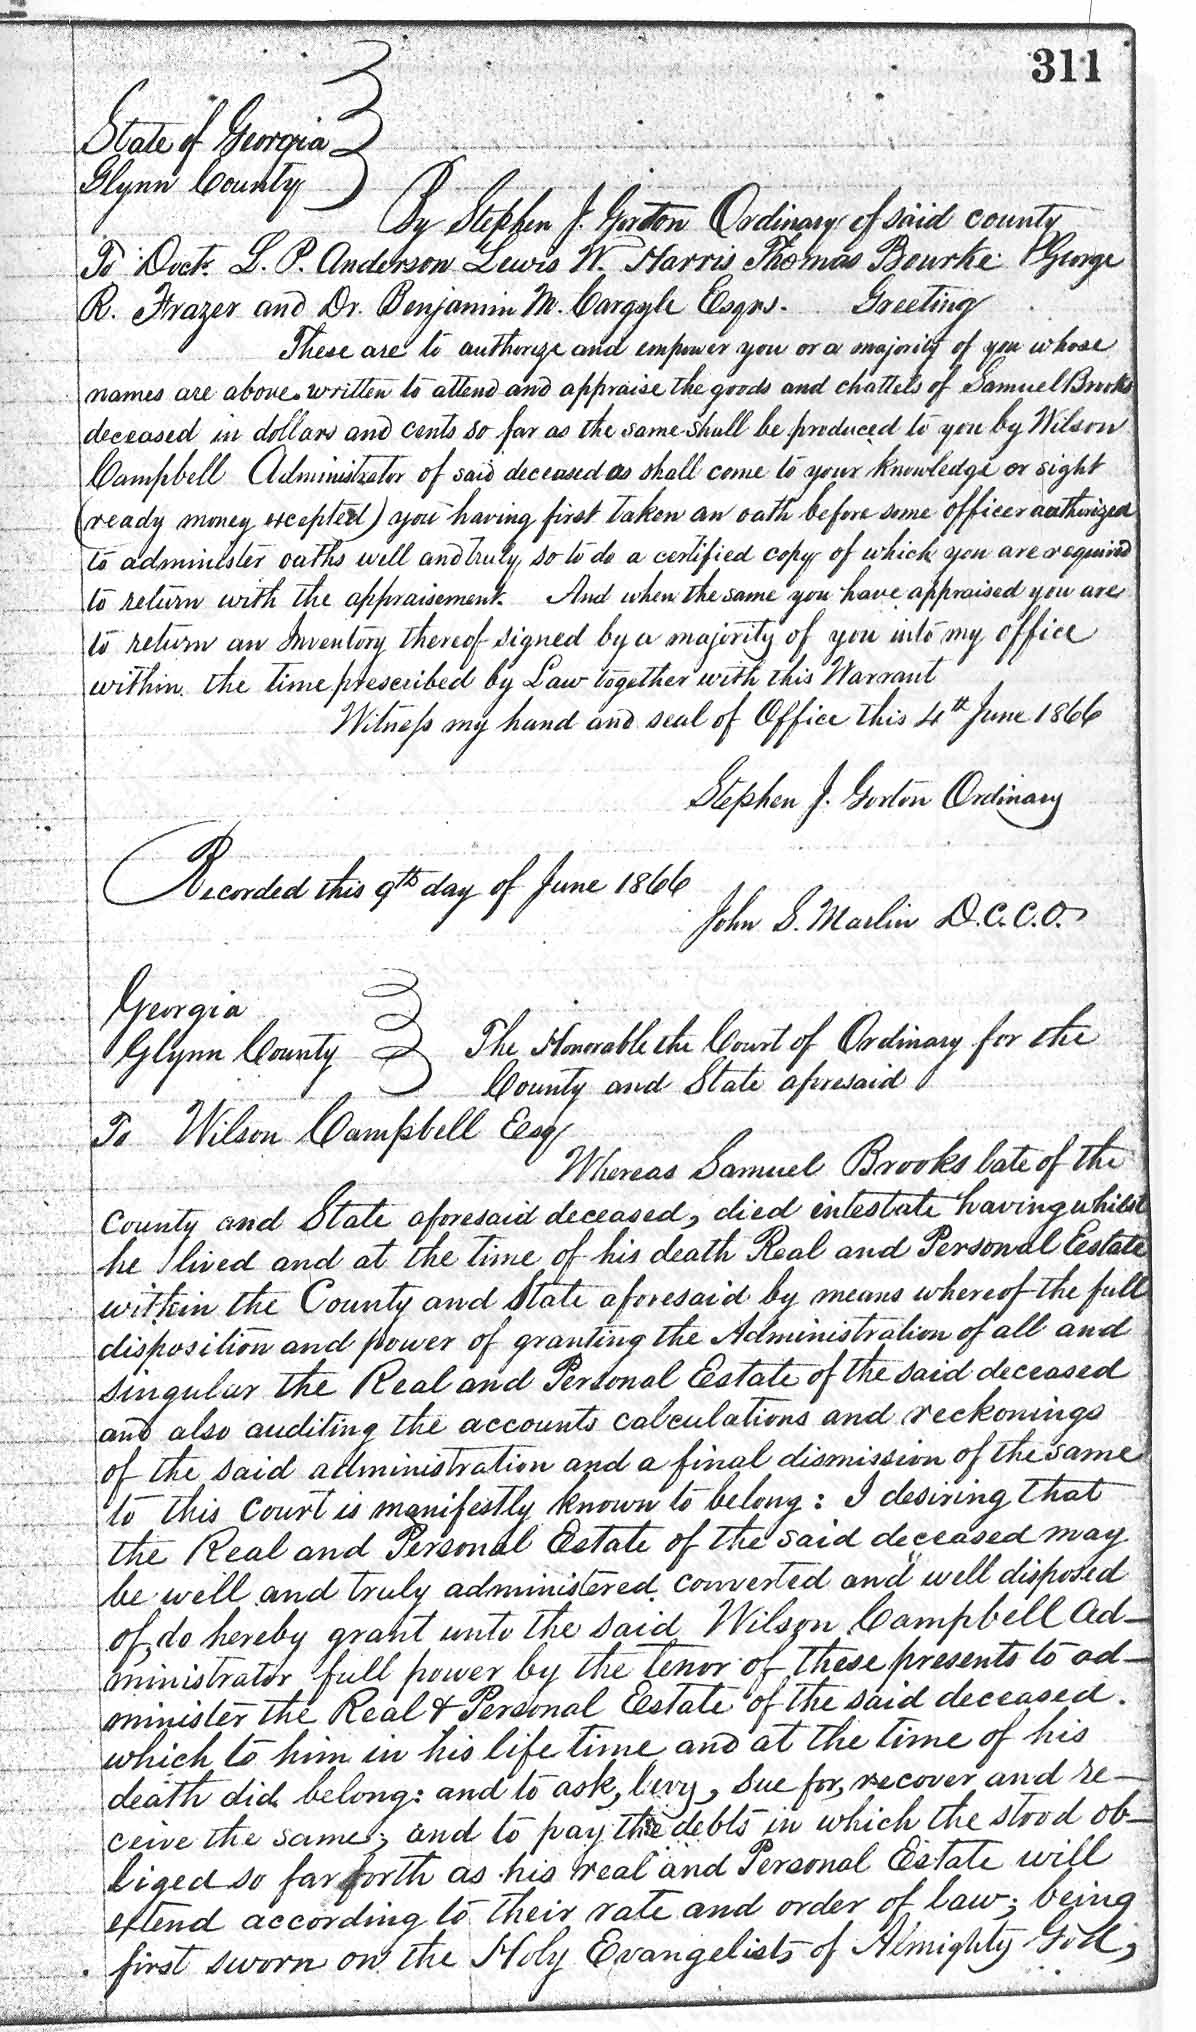 311
State of Georgia
Glynn County
By Stephen J. Gorton Ordinary of said county
To Doct. L. P. Anderson Lewis W. Harris Thomas Bourke George
R. Frazer and Dr. Benjamin M. Cargyle Esqrs. Greeting
These are to authorize and empower you or a majority of you whose
names are above written to attend and appraise the goods and chattels of Samuel Brooks
deceased in dollars and cents so far as the same shall be produced to you by Wilson
Campbell Administrator of said deceased as shall come to your knowledge or sight
(ready money excepted) you having first taken an oath before some officer authorized
to administer oaths well and truly so to do a certified copy of which you are required
to return with the appraisement. And when the same you have appraised you are
to return an Inventory thereof signed by a majority of you into my office
within the time prescribed by Law together with this Warrant
Witness my hand and seal of Office this 4th June 1866
Stephen J. Gorton Ordinary
Recorded this 9th day of June 1866
John S. Marlin D.C.C.O.
Georgia
Glynn County
The Honorable the Court of Ordinary for the
County and State aforesaid
To Wilson Campbell Esq
Whereas Samuel Brooks late of the
County and State aforesaid deceased, died intestate having whilst
he lived and at the time of his death Real and Personal Estate
within the County and State aforesaid by means whereof the full
disposition and power of granting the Administration of all and
singular the Real and Personal Estate of the said deceased
and also auditing the accounts calculations and reckonings
of the said administration and a final dismission of the same
to this Court is manifestly known to belong: I desiring that
the Real and Personal Estate of the said deceased may
be well and truly administered converted and well disposed
of, do hereby grant unto the said Wilson Campbell Ad-
ministrator full power by the tenor of these presents to ad-
minister the Real & Personal Estate of the said deceased.
which to him in his life time and at the time of his
death did belong: and to ask, levy, sue for, recover and re-
ceive the same; and to pay the debts in which the stood ob-
liged so far forth as his real and Personal Estate will
extend according to their rate and order of law; being
first sworn on the Holy Evangelists of Almighty God,